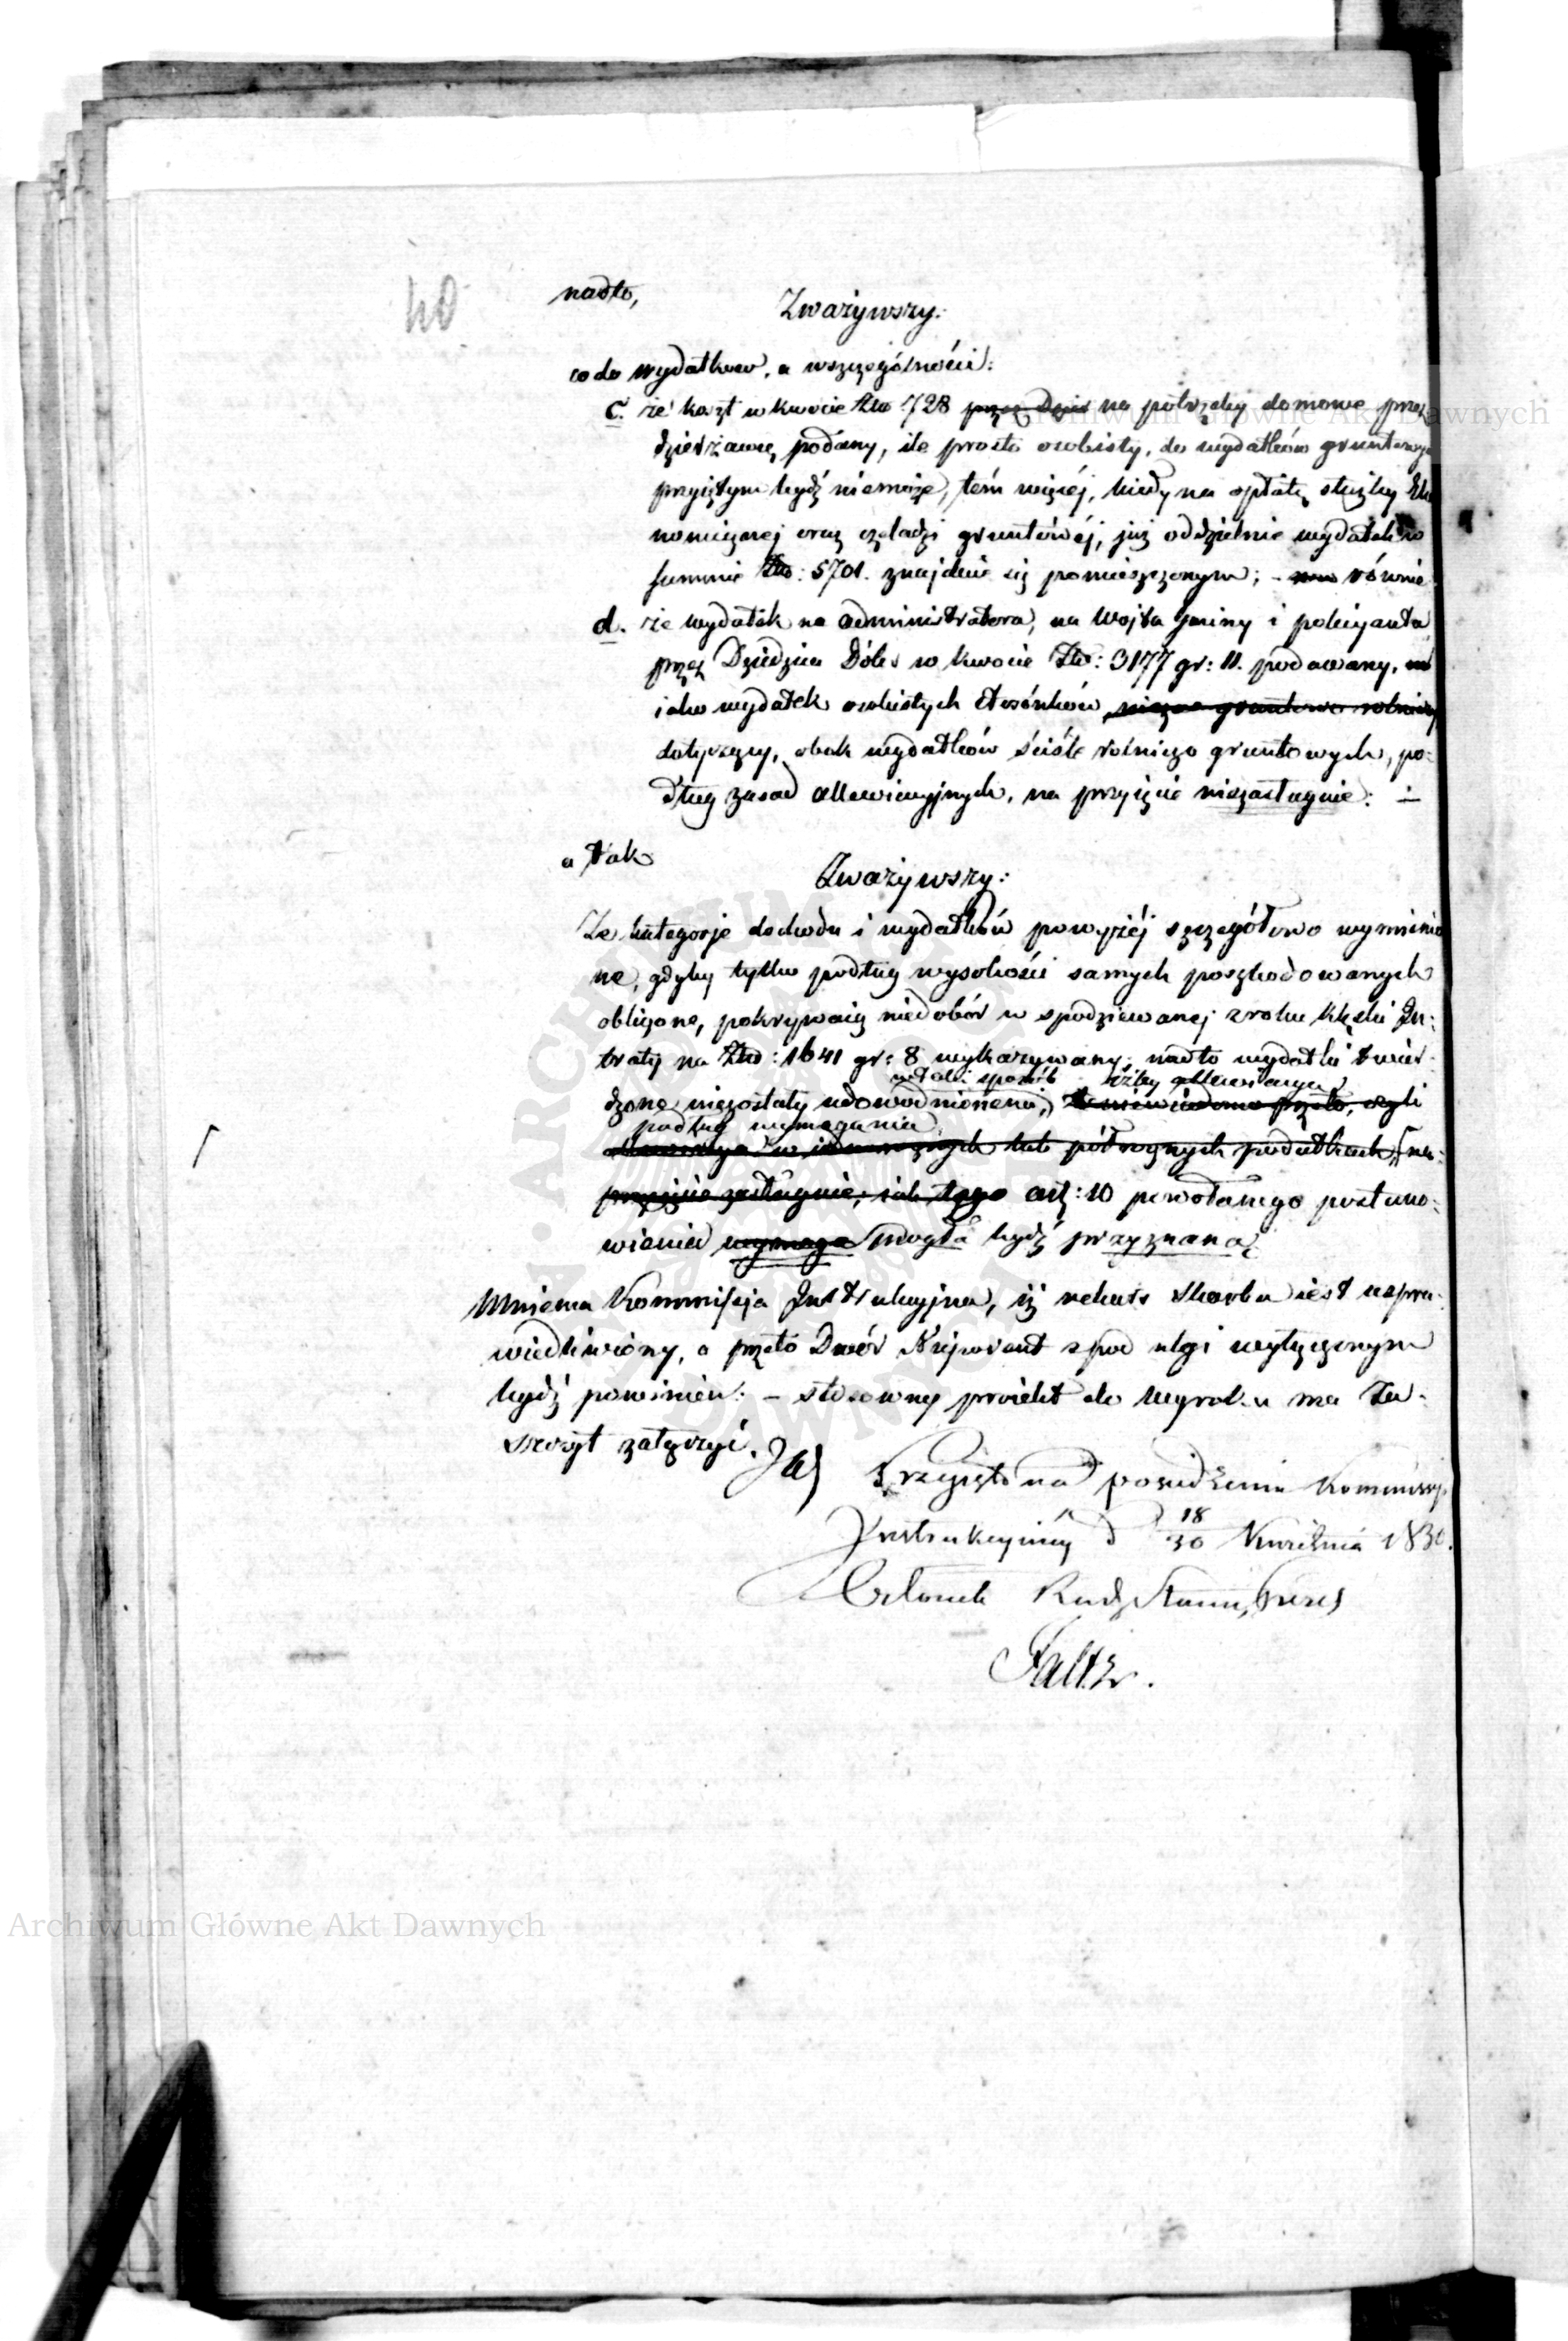 40
nadto,
Zważywszy:
co do wydatkow, a wszczególności:
c. że koszt w kwocie Złp 728 przez Dzier na potrzeby domowe przez
dzierżawcę podany, ile prosto osobisty, do wydatków gruntowych
przyiętym bydź niemoże, tém więcéj, kiedy na opłatę służby Eko
nomicznej oraz czeladzi gruntowéj, już oddzielnie wydatek w
summie Złp: 5701. znajduie się pomieszczonym; – równie
d. że wydatek na administratora, na Wojta gminy i policyanta
przez Dziedzica Dóbr w kwocie Złp: 3177 gr: 11. podawany,
iako wydatek osobistych stosónków gruntowo rolniczy
dotyczący, obok wydatków ściśle rolniczo gruntowych, po:
dług zasad allewiacyjnych, na przyięcie niezasługuie: –
a tak
Zważywszy:
Że kategorje dochodu i wydatków powyżéj szczegółowo wymienio
ne, gdyby tylko podług wysokości samych poszkodowanych
obliczone, pokrywaią niedobór w spodziewanej z roku klęski In:
traty na Złp: 1641 gr: 8 wykazywany; nadto wydatki twier
w taki sposób iżby allewiacya
dzone niezostały udowodnionemi, przeto, czyli
podług wymagania
lub półrocznych podatkach, na:
przyięcie zasługuie, iak tego art: 10 powołanego postano:
wienia wymaga mogła bydź przyznaną
Mniema Kommissja Instrukcyjna, iż rekurs Skarbu iest uspra:
wiedliwiony, a przeto Dwór spod ulgi wyłączonym
bydź powinien: – stosowny proiekt do Wyroku ma Za:
szczyt załączyć.
Przyięto na posiedzeniu Kommissyi
Instrukcyinéj d 18/30 Kwietnia 183
Członek Rady Stanu, Prezes
Faltz.
Archiwum Główne Akt Dawnych
Archiwum Główne Akt Dawnych